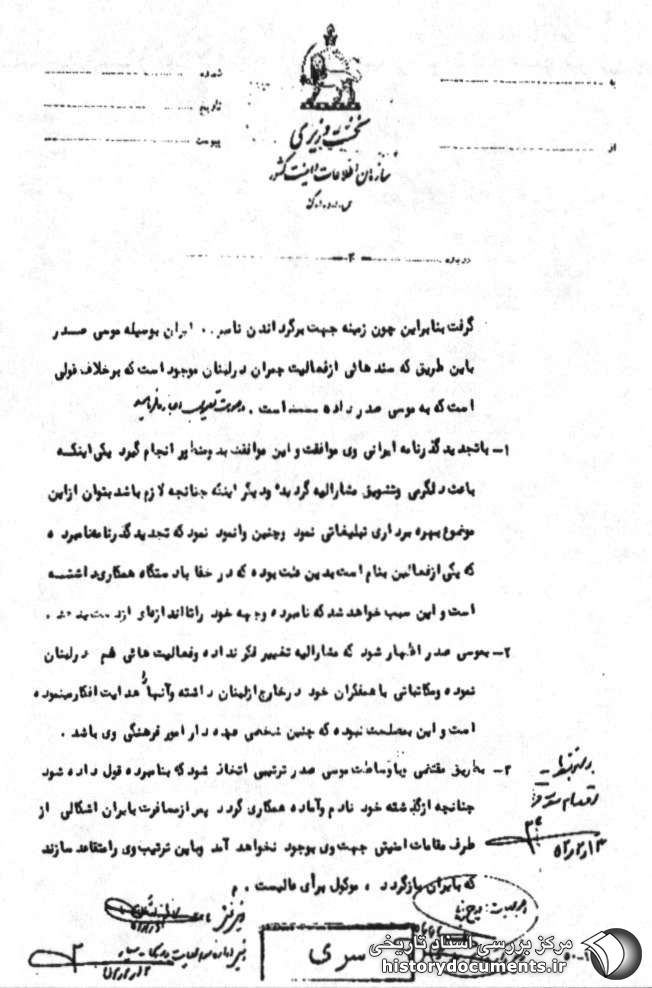 نخست وزیری
سازمان اطلاعات و امنیت کشور
س.ا.و.ا.ک
به
از
شماره
تاریخ
پیوست
درباره
-۲-
گرفت بنابراین چون زمینه جهت برگرداندن ایران بوسیله موسی صدر
باین طریق که سندهائی از فعالیت چمران در لبنان موجود است که برخلاف قولی
است که به موسی صدر داده است .
۱- باتجدید گذرنامه ایرانی وی موافقت و این موافقت بدو منظور انجام گیرد یکی اینکه
باعث دلگرمی وتشویق مشارالیه گردیده ودیگر اینکه چنانچه لازم باشد بتوان از این
موضوع بهره برداری تبلیغاتی نمود وچنین وانمود نمود که تجدید گذرنامه نامبرده
که یکی از فعالین بنام است بدین علت بوده که در خفا بادستگاه همکاری داشتــه
است و این سبب خواهد شد که نامبرده وجهه خود را تا اندازه‌ای از دست بدهد .
۲- بموسی صدر اظهار شود که مشارالیه تغییر فکر نداده وفعالیت هائی هم در لبنان
نموده ومکاتباتی با همفکران خود در خارج از لبنان داشته وآنها را هدایت افکار مینموده
است و این بمصلحت نبوده که چنین شخصی عهده دار امور فرهنگی وی باشد .
۳- بطریق مقتضی وبا وساطت موسی صدر ترتیبی اتخاذ شود که بنامبرده قول داده شود
چنانچه از گذشته خود نادم وآماده همکاری گردد پس از مسافرت بایران اشکالی از
طرف مقامات امنیتی جهت وی بوجود نخواهد آمد وباین ترتیب وی را متقاعد سازند
که بایران بازگردد ، موکول برأی عالیست . م
سری
مرکز بررسی اسناد تاریخی
historydocuments.ir